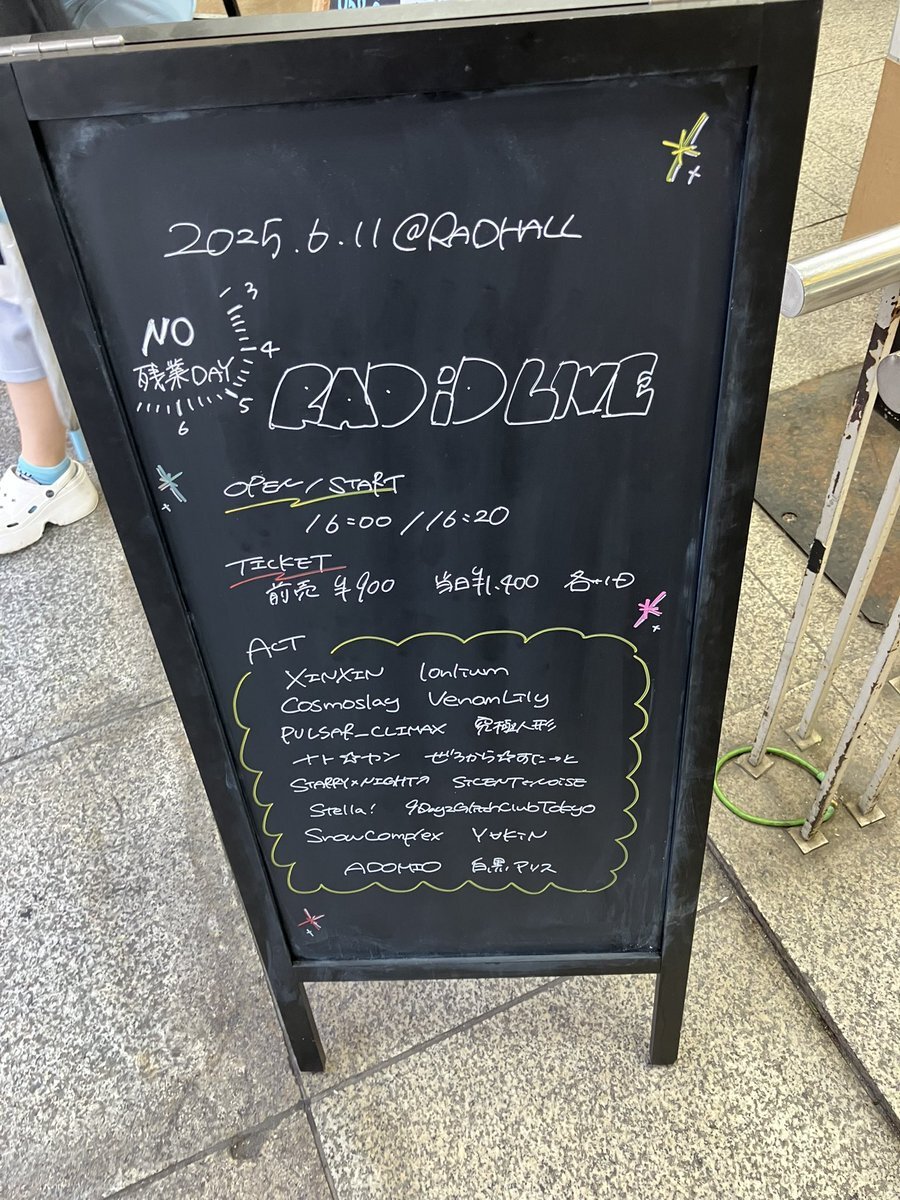 2025.6.11 @RADHALL
3
NO
4
残業DAY
5
6
RADiD LIVE
OPEN / START
16:00 / 16:20
TICKET
前売 ¥900 当日¥1.400 各+1D
ACT
XINXIN lonlium
Cosmoslay VenomLily
PULSAR_CLIMAX 究極人形
ナト☆カン ぜろから☆すにーっと
STARRY×NIGHT↗ SILENT⇔NOISE
Stella! 9DayzGlitchClubTokyo
SnowComplex
ADOMIO 白黒アリス